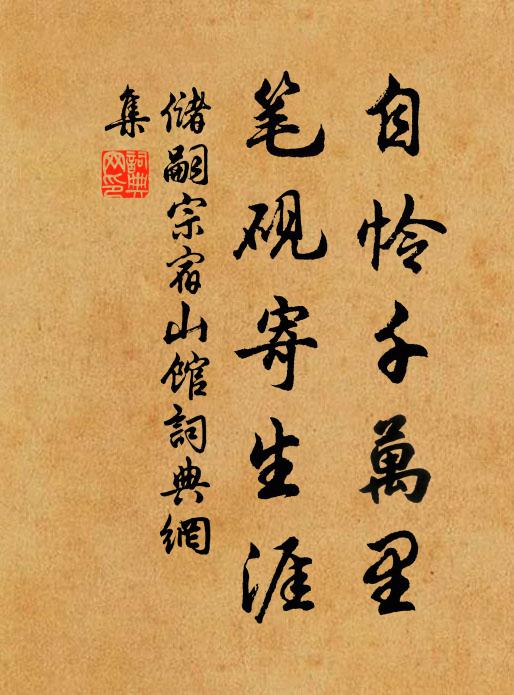 自怜千萬里
笔砚寄生涯
儲嗣宗宿山馆詞典網
集
詞典
网印